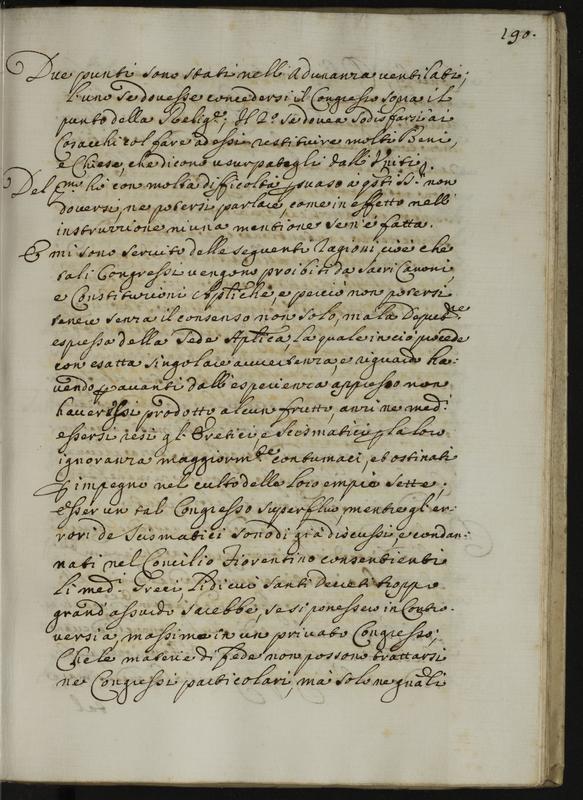 190.
Due punti sono stati nell'Adunanza ventilati;
l'uno se dovesse concedersi il Congresso sopra il
punto della Relige, Il 2o se dovea sodisfarsi ai
Cosacchi col fare ad essi restituire molti Beni,
e Chiese, che dicono usurpategli dall'Uniti,
Del pmo ho con molta difficoltà psuaso a qsti SSri non
doversi, ne potersi parlare, come in effetto nell'
instruzzione niuna mentione se n'è fatta.
E mi sono servito delle seguenti ragioni, cioè che
tali Congressi vengono proibiti da Sacri Canoni,
e Constituzioni Apliche, e perciò non potersi
tenere senza il consenso non solo, ma la Deputne
espressa della Sede Aplica la quale in ciò procede
con esatta singolare avvertenza e riguardo ha-
vendo p avanti dall'esperienza appreso non
haver essi prodotto alcun frutto, anzi ne medi
essersi resi gl'Eretici e Scismatici p la loro
ignoranza maggiormte contumaci, et ostinati
p impegno nel culto delle loro empie sette;
Esser un tal Congresso superfluo, mentre gl'er-
rori de Scismatici sono di già discussi, e condan-
nati nel Concilio Fiorentino consentienti
li medi Greci, di cui Santi Decreti troppo
grand'assurdo sarebbe, se si ponessero in Contro-
versia, massime in un privato Congresso;
Che le materie di Fede non possono trattarsi
ne Congressi particolari, mà solo ne gnāli